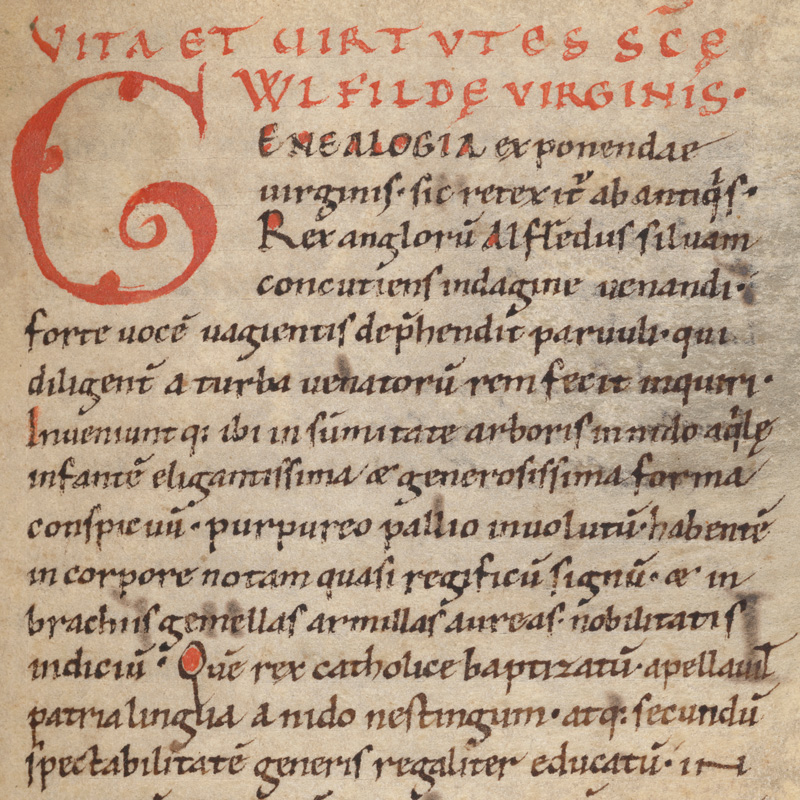 VITA ET VIRTVTES SCĒ
WLFILDĘ VIRGINIS.
GENEALOGIA exponendae
uirginis. sic retexit᷑ ab antiq̇s.
Rex anglorū Alfledus siluam
concutiens indagine uenandi.
forte uocē uagientis dep̄hendit paruuli. qui
diligent̄ a turba uenatorū rem fecit inquiri.
Inueniuntq; ibi in sūmitate arboris in nido aq̇lę
infantē eligantissima & generosissima forma
conspicuū. purpureo pallio inuolutū. habentē
in corpore notam quasi regificū signū. & in
brachiis gemellas armillas aureas. nobilitatis
indiciū. Quē rex catholice baptizatū. apellauit
patria lingua a nido nestingum. atq; secundū
spectabilitatē generis regaliter educatū. in